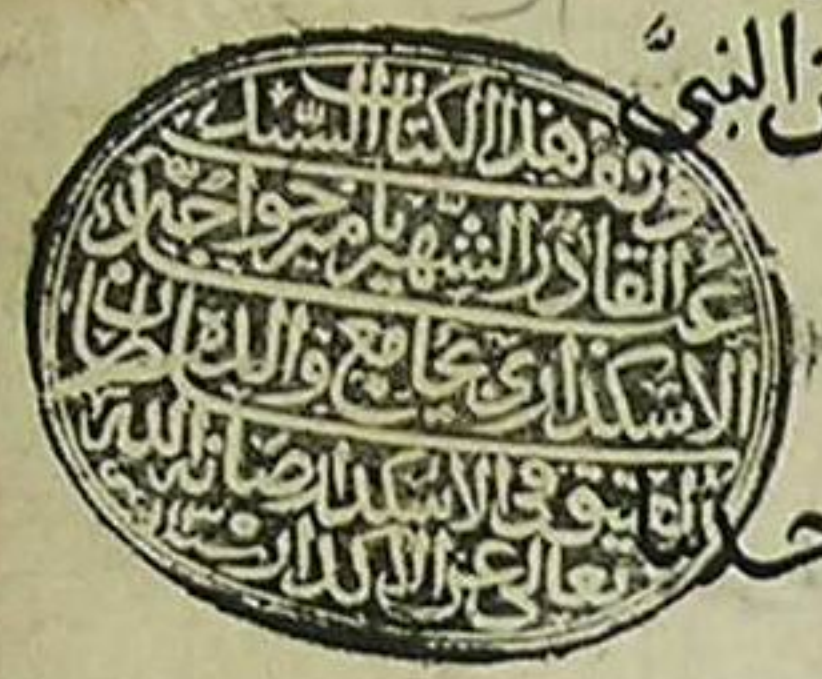 النبيَّ
وقف هذا الكتاب السيد
عبد القادر الشهير بامير خواجه
الاسكداري بجامع والدة سلطان
العتيق في الاسكدار صانه الله
تعالى عن الاكدار